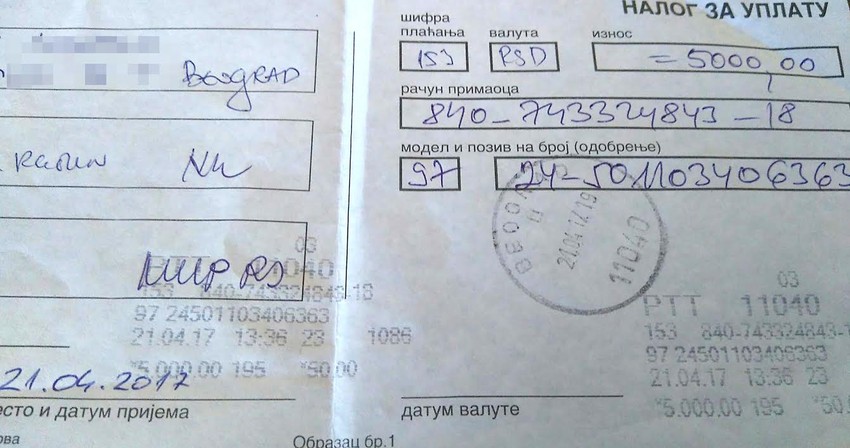 НАЛОГ ЗА УПЛАТУ
шифра
плаћања валута износ
153 RSD =5000,00
BEOGRAD
рачун примаоца
840-743324843-18
RAČUN
модел и позив на број (одобрење)
97 24-501103406363
МUP RS
БЕОГРАД
21.04.17 19
11040
03
PTT 11040
153 840-743324843-18
97 24501103406363
21.04.17 13:36 23 1086
*5.000.00 195 *50.00
03
PTT 11040
153 840-743324843-1
97 24501103406363
21.04.17 13:36 23
*5.000.00 195 *50.
21.04.2017
есто и датум пријема
датум валуте
ова
Образац бр.1